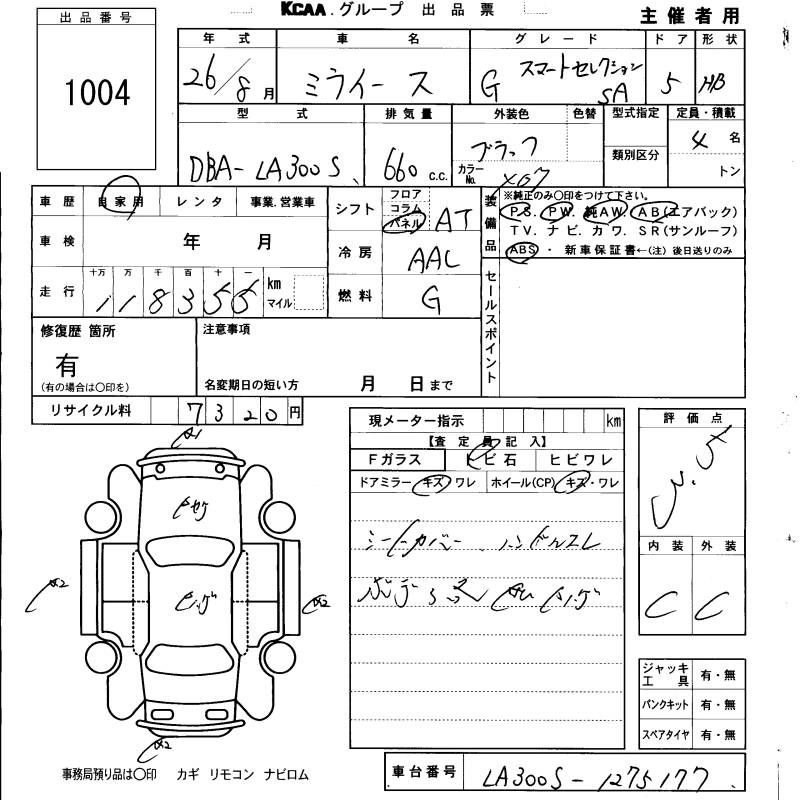 KCAA.グループ 出品票
主催者用
出品番号
1004
年式 車名 グレード ドア 形状
26/8月 ミライース G スマートセレクション SA 5 HB
型式 排気量 外装色 色替 型式指定 定員・積載
DBA-LA300S 660 c.c. ブラック 類別区分 4名
カラーNo. X07 トン
車歴 自家用 レンタ 事業.営業車
車検 年 月
走行 十万 万 千 百 十 一 km マイル
118355
シフト フロア コラム パネル AT
冷房 AAC
燃料 G
装備品 ※純正のみ〇印をつけて下さい。
PS. PW. 純AW. AB(エアバック)
TV. ナビ. カワ. SR(サンルーフ)
ABS・新車保証書←(注)後日送りのみ
セールスポイント
修復歴 箇所
有
(有の場合は〇印を)
注意事項
名変期日の短い方 月 日まで
リサイクル料 7320円
現メーター指示 km
【査定員記入】
Fガラス トビ石 ヒビワレ
ドアミラー キズ・ワレ ホイール(CP) キズ・ワレ
シートカバー、ハンドルスレ
評価点
3.5
内装 外装
C C
A1
A2
A2
A2
ジャッキ工具 有・無
パンクキット 有・無
スペアタイヤ 有・無
事務局預り品は〇印 カギ リモコン ナビロム
車台番号 LA300S-1275177